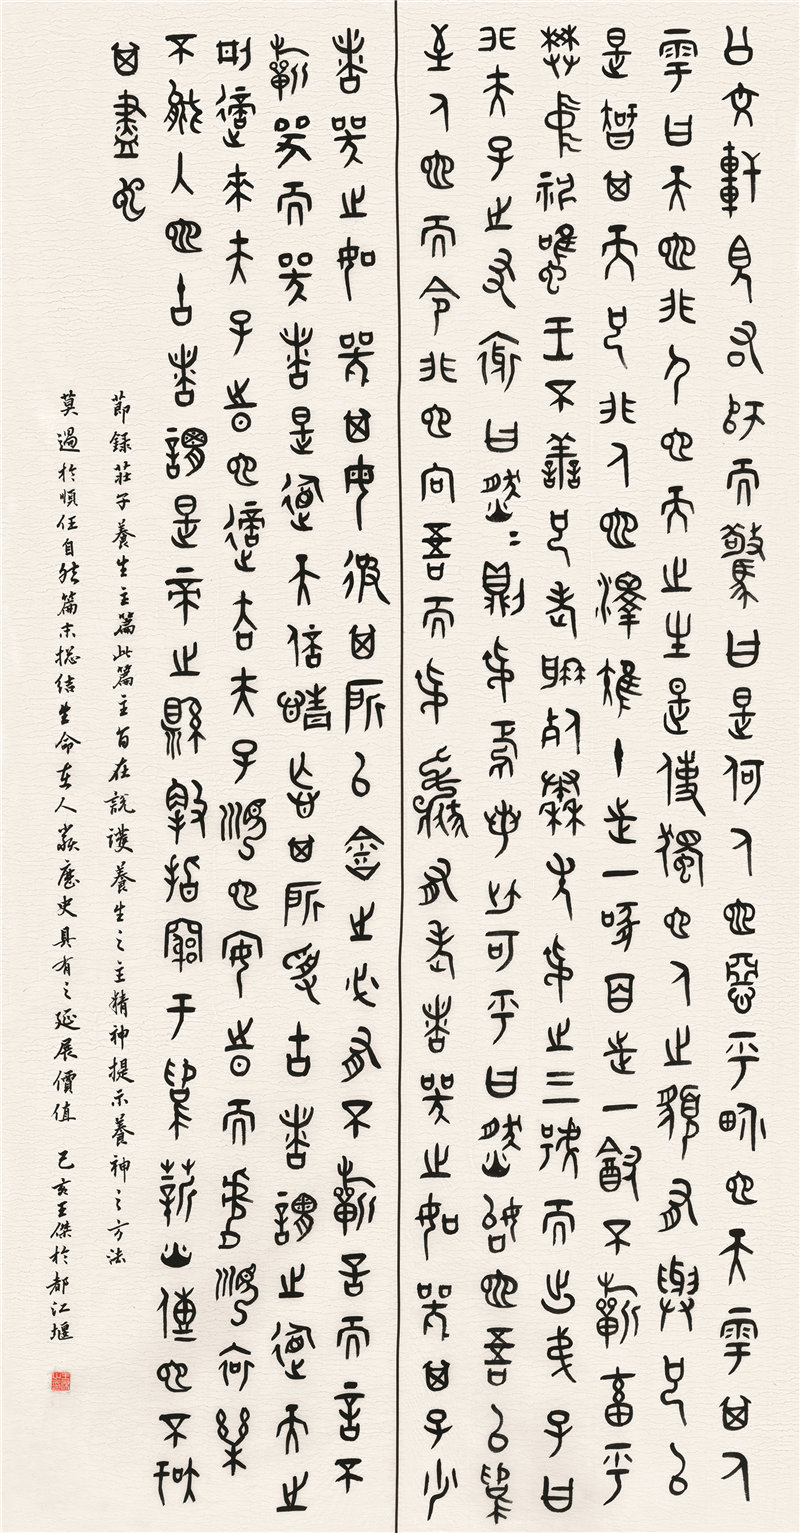 公文軒見右師而驚曰是何人也惡乎介也天雩其人
雩曰天也非人也天之生是使獨也人之貌有與也以
是智其天也非人也澤雉十步一啄百步一飲不蘄畜乎
樊中神雖王不善也老聃死秦失弔之三號而出弟子曰
非夫子之友邪曰然=則弔焉若此可乎曰然始也吾以為
至人也而今非也向吾而弔焉有老者哭之如哭其子少
者哭之如哭其母彼其所以會之必有不蘄言而言不
蘄哭而哭者是遁天倍情忘其所受古者謂之遁天之
刑適來夫子時也適去夫子順也安時而處順哀樂
不能入也古者謂是帝之縣解指窮于為薪火傳也不知
其盡也
節錄莊子養生主篇此篇主旨在說護養生之主精神提示養神之方法
莫過於順任自然篇末總結生命在人類歷史具有之延展價值 己亥王傑於都江堰